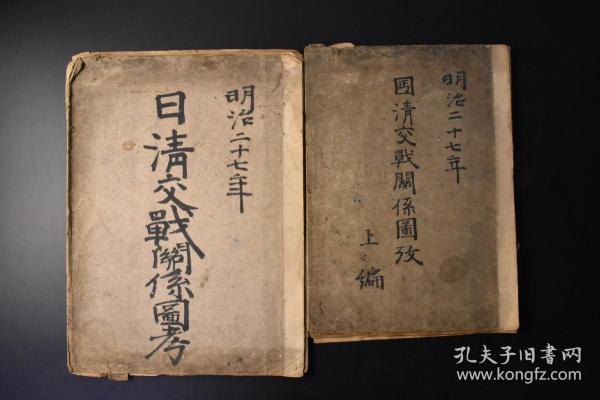 明治二十七年
日清交戰關係圖考
明治二十七年
清交戰關係圖攷
上編
孔夫子旧書网
www.kongfz.com